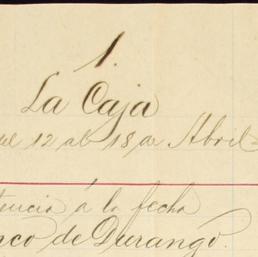 1.
La Caja
del 12 al 18 de Abril
tencia á la fecha
nco de Durango.